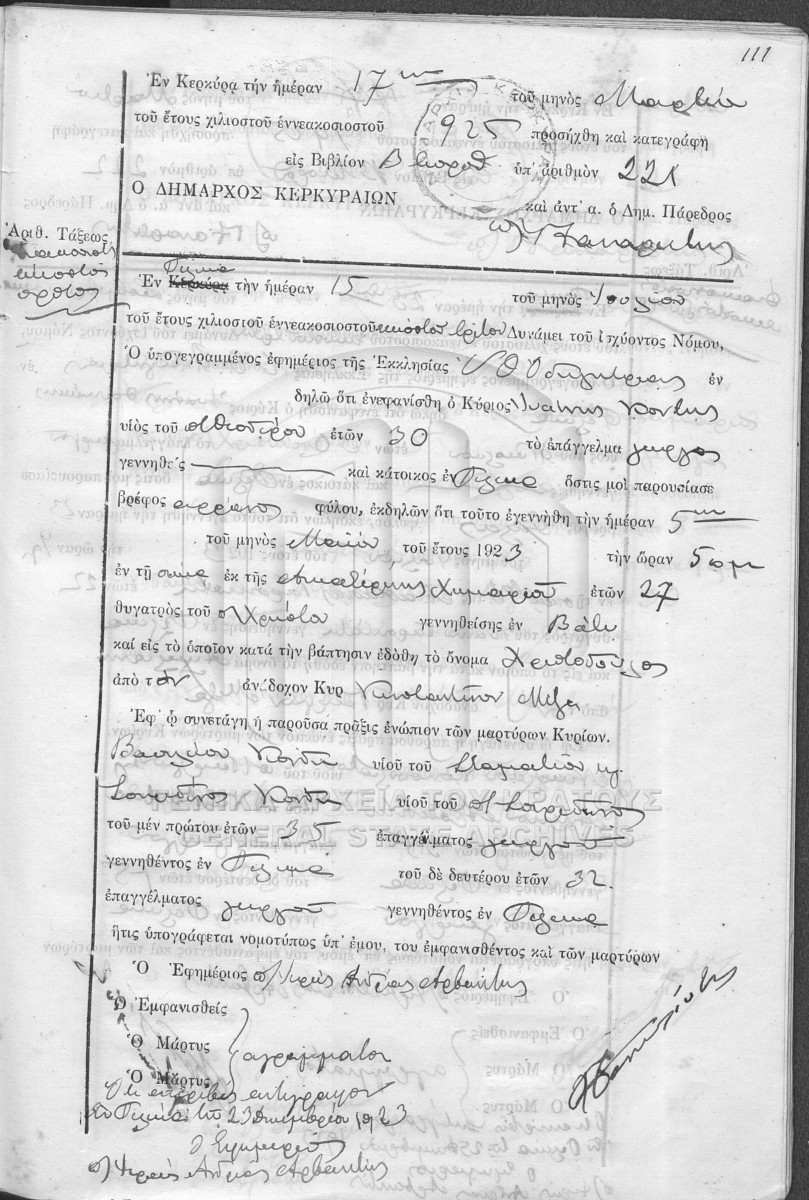 111
Ἐν Κερκύρᾳ τήν ἡμέραν 17ην τοῦ μηνὸς Μαρτίου
τοῦ ἔτους χιλιοστοῦ ἐννεακοσιοστοῦ 1925 προσήχθη καὶ κατεγράφη
εἰς Βιβλίον Β ὑπ' ἀριθμὸν 221
Ο ΔΗΜΑΡΧΟΣ ΚΕΡΚΥΡΑΙΩΝ
καὶ ἀντ' α. ὁ Δημ. Πάρεδρος
Ἀριθ. Τάξεως
εἰκοστὸς
Ἐν Κερκύρᾳ τὴν ἡμέραν 15 τοῦ μηνὸς Ἰουλίου
τοῦ ἔτους χιλιοστοῦ ἐννεακοσιοστοῦ εἰκοστοῦ τρίτου Δυνάμει τοῦ ἰσχύοντος Νόμου,
Ὁ ὑπογεγραμμένος ἐφημέριος τῆς Ἐκκλησίας Υ Θ Ὁδηγητρίας ἐν
δηλῶ ὅτι ἐνεφανίσθη ὁ Κύριος Ἰωάννης Κοντης
υἱὸς τοῦ ἐτῶν 30 τὸ ἐπάγγελμα γεωργὸς
γεννηθεὶς καὶ κάτοικος ἐν ὅστις μοὶ παρουσίασε
βρέφος ἄρρενος φύλου, ἐκδηλῶν ὅτι τοῦτο ἐγεννήθη τὴν ἡμέραν 5ην
τοῦ μηνὸς Μαΐου τοῦ ἔτους 1923 τὴν ὥραν 5 πμ
ἐν τῇ οἰκίᾳ ἐκ τῆς Αἰκατερίνης Χυμαριοῦ ἐτῶν 27
θυγατρὸς τοῦ Χρήστου γεννηθείσης ἐν Βάτο
καί εἰς τὸ ὁποῖον κατὰ τὴν βάπτησιν ἐδόθη τὸ ὄνομα Χριστόδουλος
ἀπὸ τὸν ἀνάδοχον Κυρ Κωσταντῖνον
Ἐφ' ᾧ συνετάγη ἡ παροῦσα πρᾶξις ἐνώπιον τῶν μαρτύρων Κυρίων.
Βασιλείου Κοντη υἱοῦ τοῦ Σταματίου
Σπυρίδωνος Κοντη υἱοῦ τοῦ Σπυρίδωνος
ΓΕΝΙΚΑ ΑΡΧΕΙΑ ΤΟΥ ΚΡΑΤΟΥΣ
GENERAL STATE ARCHIVES
τοῦ μέν πρώτου ἐτῶν 35 ἐπαγγέλματος γεωργοῦ
γεννηθέντος ἐν τοῦ δὲ δευτέρου ἐτῶν 32
ἐπαγγέλματος γεωργοῦ γεννηθέντος ἐν
ἥτις ὑπογράφεται νομοτύπως ὑπ' ἐμου, του ἐμφανισθέντος καὶ τῶν μαρτύρων
Ὁ Ἐφημέριος Ἱερεὺς Ἀνδρέας Ἀρβανίτης
Ὁ Ἐμφανισθείς
Ὁ Μάρτυς ἀγράμματοι
Ὁ Μάρτυς
Ὅτι ἀκριβὲς ἀντίγραφον
τῇ 23 Δεκεμβρίου 1923
ὁ Ἐφημέριος
Ἱερεὺς Ἀνδρέας Ἀρβανίτης